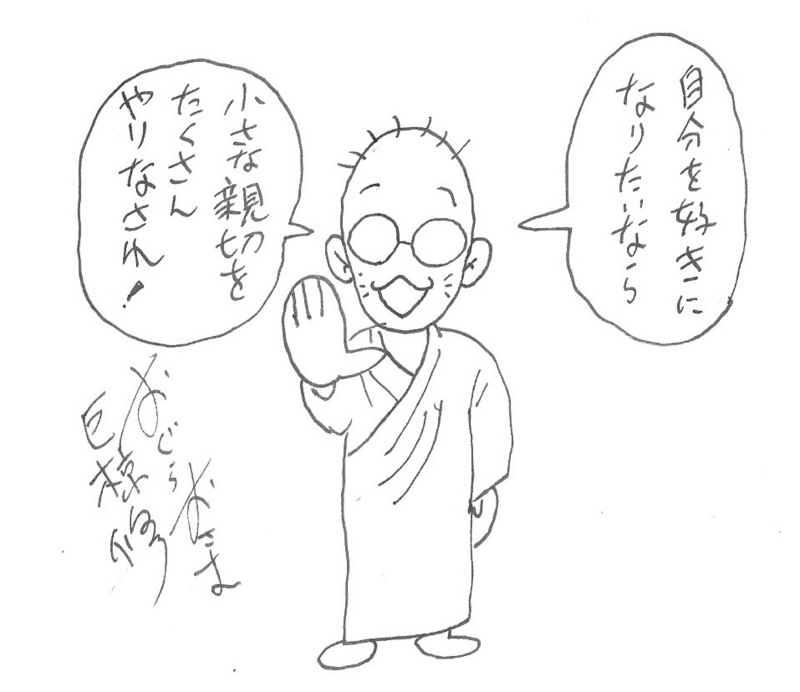 自分を好きに
なりたいなら
小さな親切を
たくさん
やりなされ!
おぐらおさむ
巨椋修